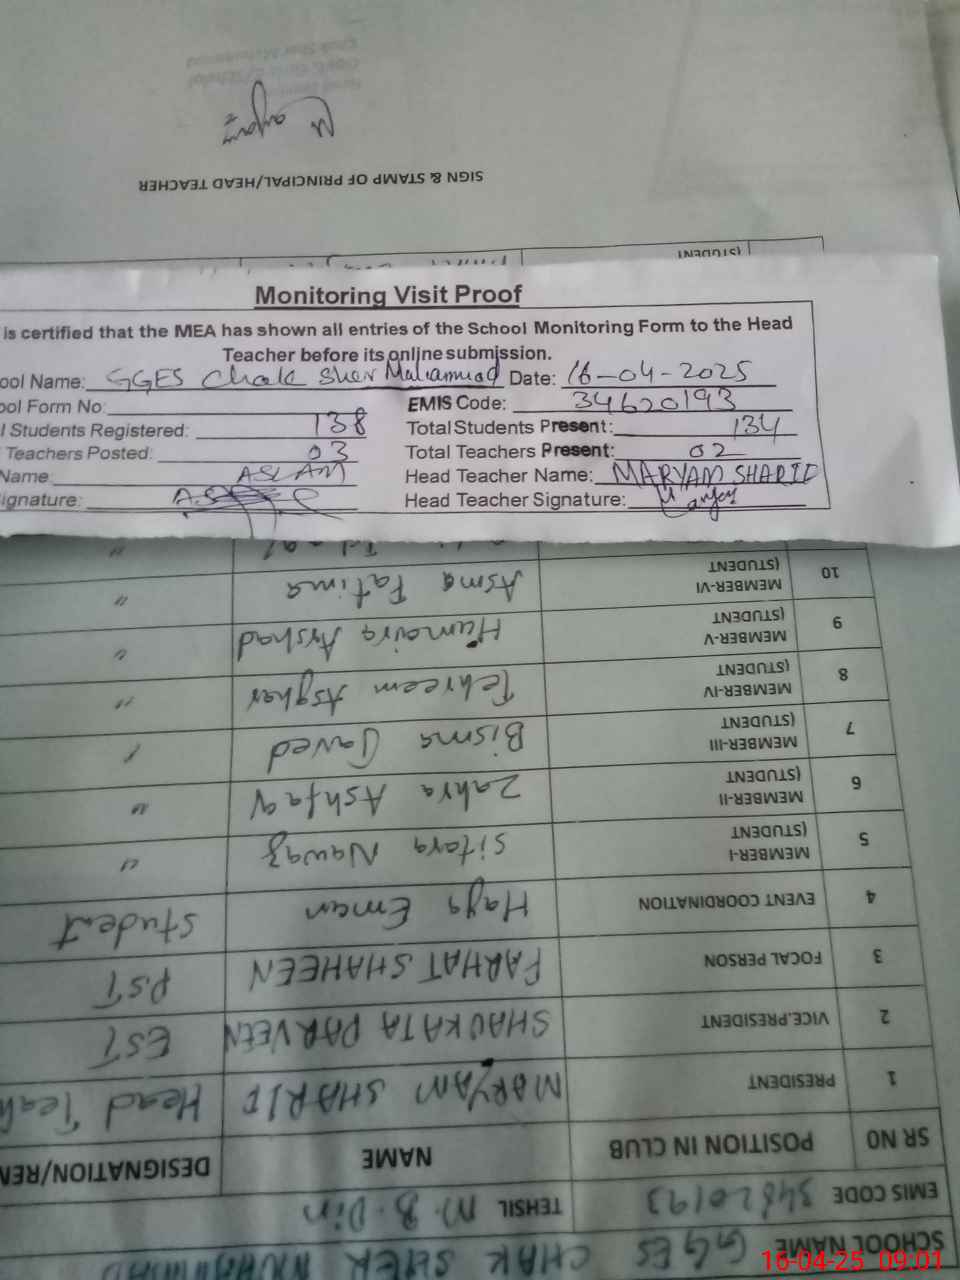 Monitoring Visit Proof
is certified that the MEA has shown all entries of the School Monitoring Form to the Head
Teacher before its online submission.
ool Name: GGES Chak Sher Muhammad Date: 16-04-2025
ool Form No: EMIS Code: 34620193
l Students Registered: 138 Total Students Present: 134
Teachers Posted: 03 Total Teachers Present: 02
Name: ASLAM Head Teacher Name: MARYAM SHARIF
ignature: Head Teacher Signature: Maryam
SCHOOL NAME GGES CHAK SHER MUHAMMAD
EMIS CODE 34620193 TEHSIL M.B.Din
SR NO POSITION IN CLUB NAME DESIGNATION/REM
1 PRESIDENT MARYAM SHARIF Head Teach
2 VICE.PRESIDENT SHAUKATA PARVEEN EST
3 FOCAL PERSON FARHAT SHAHEEN PST
4 EVENT COORDINATION Haya Eman student
5 MEMBER-I (STUDENT) Sitara Nawaz "
6 MEMBER-II (STUDENT) Zahra Ashfaq "
7 MEMBER-III (STUDENT) Bisma Javed "
8 MEMBER-IV (STUDENT) Tehreem Asghar "
9 MEMBER-V (STUDENT) Humaira Arshad "
10 MEMBER-VI (STUDENT) Asma Fatima "
(STUDENT
SIGN & STAMP OF PRINCIPAL/HEAD TEACHER
Maryam
16-04-25 09:01